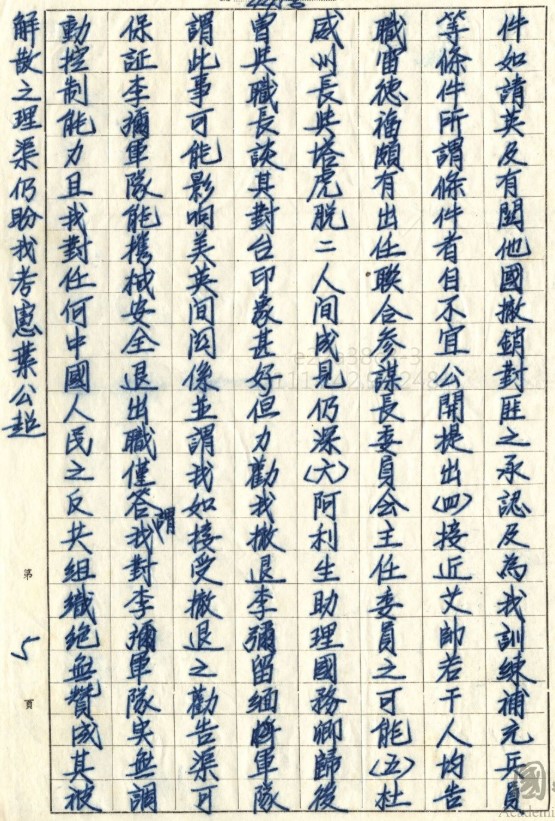 件如請英及有関他國撤銷對匪之承認及為我訓練補充兵員
等條件所謂條件者自不宜公開提出(四)接近艾帥若干人均告
職雷德福頗有出任聯合参謀長委員会主任委員之可能(五)杜
威州長与塔虎脱二人间成見仍深(六)阿利生助理國務卿歸後
曽与職長談其對台印象甚好但力勸我撤退李彌留緬軍隊
謂此事可能影响美英间関係並謂我如接受撤退之勸告渠可
保証李彌軍隊能携械安全退出職僅答謂我對李彌軍隊実無調
動控制能力且我對任何中國人民之反共組織絶無賛成其被
解散之理渠仍盼我考慮葉公超
第5頁
國
Academi